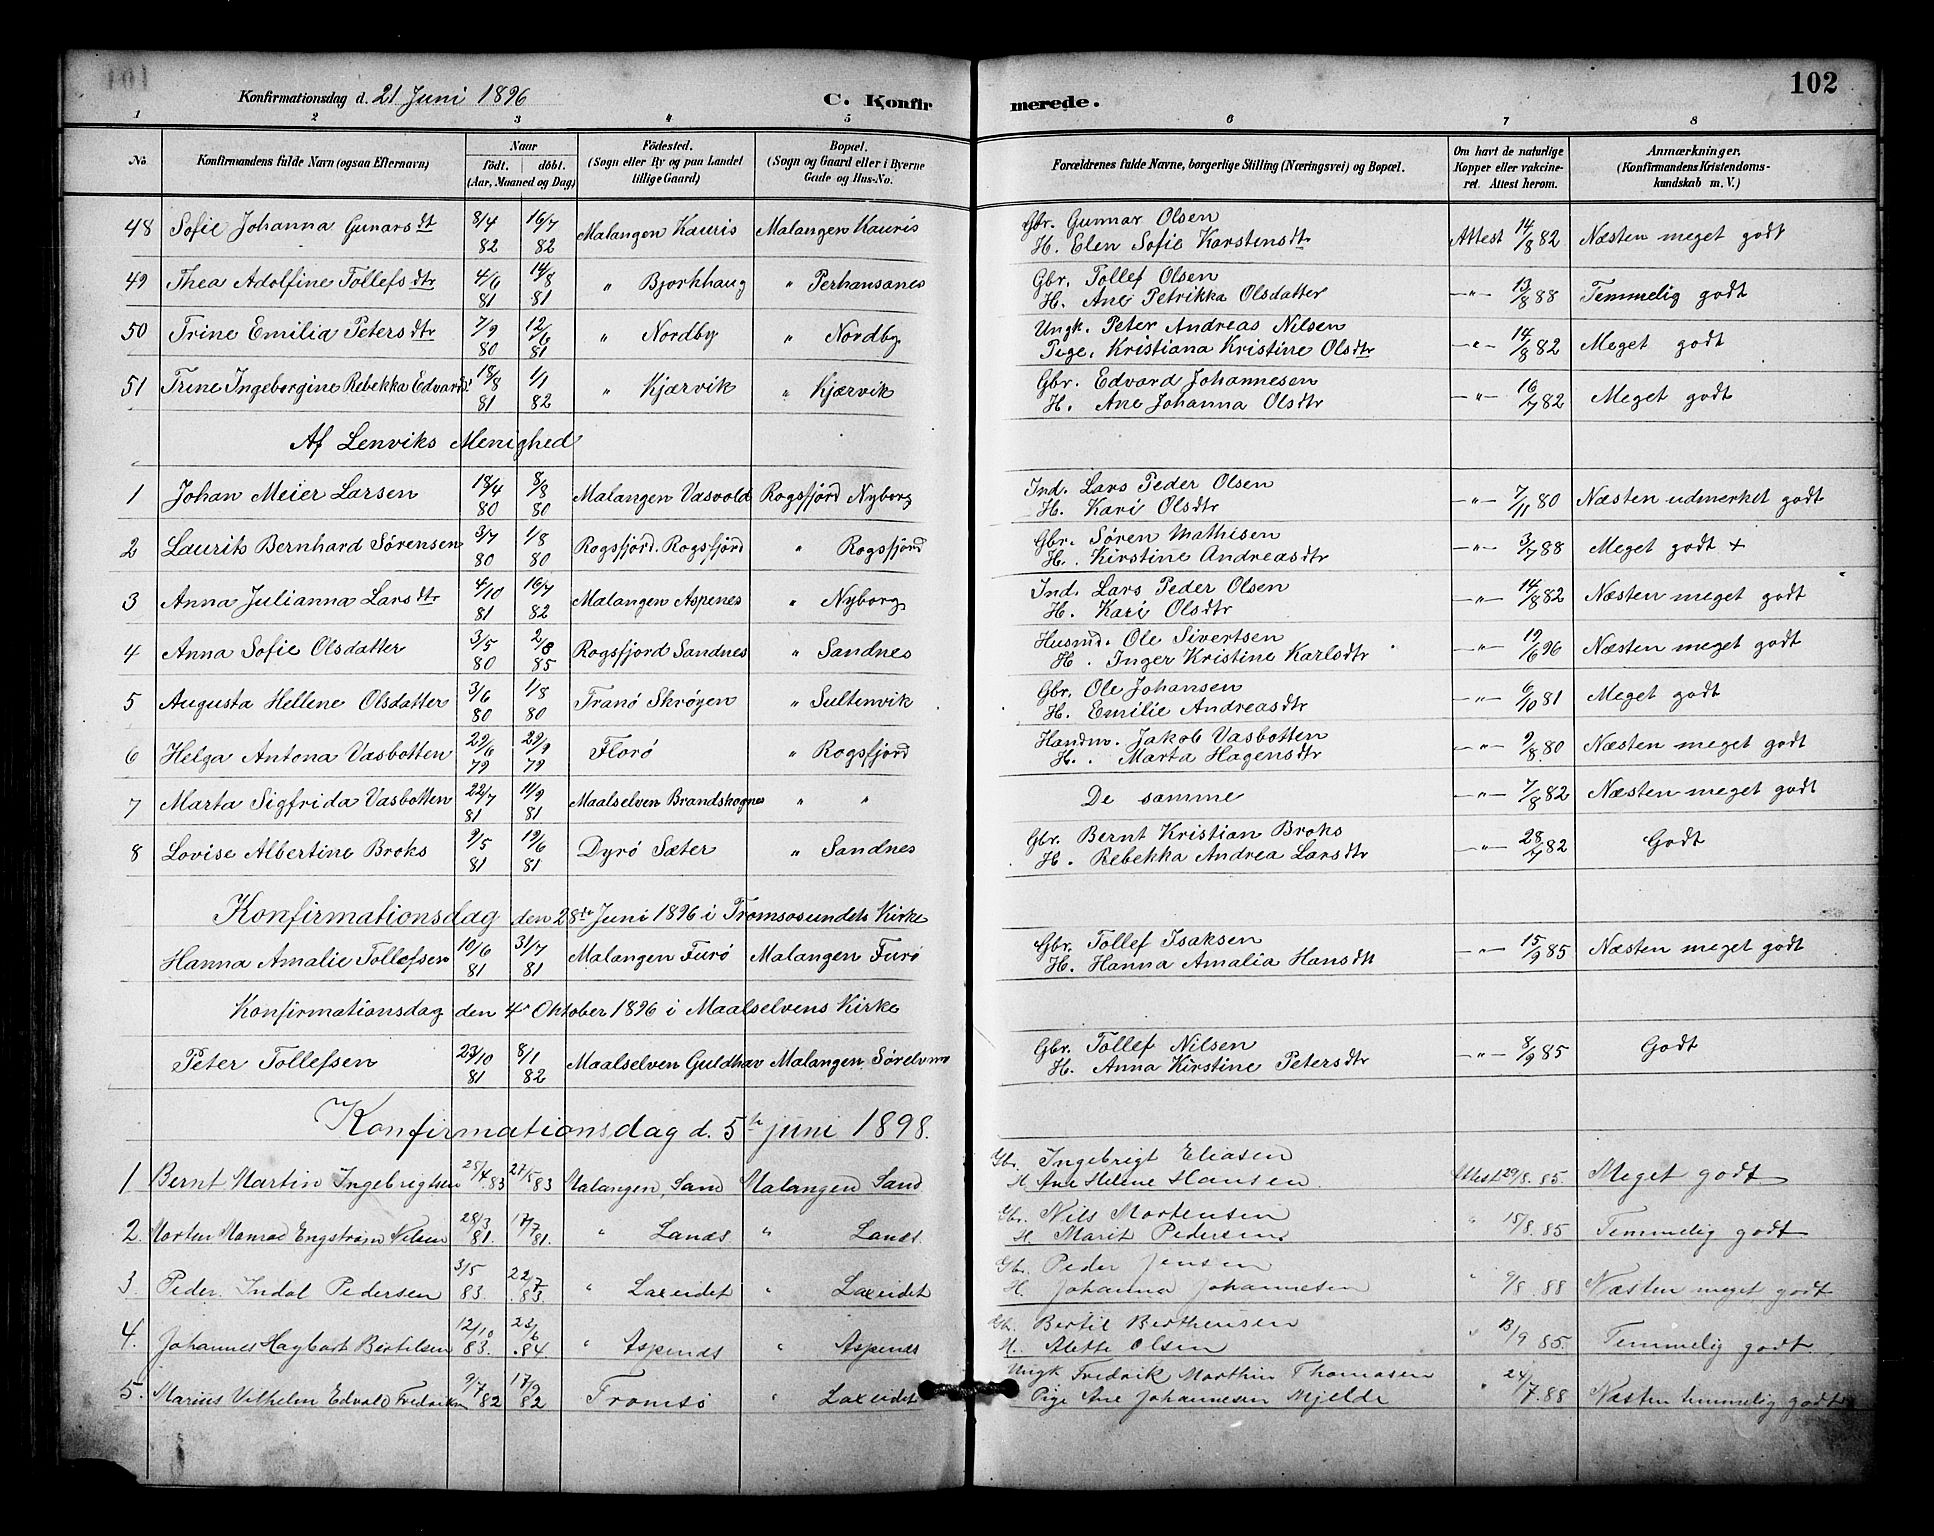 102
Konfirmationsdag d. 21 Juni 1896 C. Konfirmerede.
1 2 3 4 5 6 7 8
No Konfirmandens fulde Navn (ogsaa Efternavn) Naar født. døbt. (Aar, Maaned og Dag) Fødested. (Sogn eller By og paa Landet tillige Gaard) Bopæl. (Sogn og Gaard eller i Byerne Gade og Hus-No. Forældrenes fulde Navne, borgerlige Stilling (Næringsvei) og Bopæl. Om havt de naturlige Kopper eller vakcineret. Attest herom. Anmærkninger. (Konfirmandens Kristendomskundskab m. V.)
48 Sofie Johanna Gunarsdt 8/4 82 16/7 82 Malangen Kauris Malangen Kauris Gbr. Gunnar Olsen H. Elen Sofie Karstensdtr Attest 14/8 82 Næsten meget godt
49 Thea Adolfine Tollefsdtr 4/6 81 14/8 81 " Bjorkhaug " Perhansanes Gbr. Tollef Olsen H. Ane Petrikka Olsdatter -"- 13/8 88 Temmelig godt
50 Trine Emilia Petersdtr 7/9 80 12/6 81 " Nordby " Nordby Ungk. Peter Andreas Nilsen Pige. Kristiana Kristine Olsdtr -"- 14/8 82 Meget godt
51 Trine Ingeborgine Rebekka Edvardd! 18/8 81 1/1 82 " Kjærvik " Kjærvik Gbr. Edvard Johannesen H. Ane Johanna Olsdtr -"- 16/7 82 Meget godt
Af Lenviks Menighed
1 Johan Meier Larsen 18/4 80 8/8 80 Malangen Vasvold Rogsfjord Nyborg Ind. Lars Peder Olsen H. Kari Olsdtr -"- 7/11 80 Næsten udmerket godt
2 Laurits Bernhard Sørensen 3/7 80 1/8 80 Rogsfjord. Rogsfjord " Rogsfjord Gbr. Søren Mathisen H. Kirstine Andreasdtr -"- 3/7 88 Meget godt +
3 Anna Julianna Larsdtr 4/10 81 16/7 82 Malangen Aspenes " Nyborg Ind. Lars Peder Olsen H. Kari Olsdtr -"- 14/8 82 Næsten meget godt
4 Anna Sofie Olsdatter 3/5 80 2/8 85 Rogsfjord Sandnes " Sandnes Husmd. Ole Sivertsen H. Inger Kristine Karlsdtr -"- 19/6 96 Næsten meget godt
5 Augusta Hellene Olsdatter 3/6 80 1/8 80 Tranø Skrøyen " Sultenvik Gbr. Ole Johansen H. Emilie Andreasdtr -"- 6/10 81 Meget godt
6 Helga Antona Vasbotten 29/6 79 29/9 79 Florø " Rogsfjord Handm. Jakob Vasbotten H. Marta Hagensdtr -"- 9/8 80 Næsten meget godt
7 Marta Sigfrida Vasbotten 22/7 81 11/9 81 Maalselven Brandskognes " " De samme -"- 7/8 82 Næsten meget godt
8 Lovise Albertine Broks 9/5 81 19/6 81 Dyrø Sæter " Sandnes Gbr. Bernt Kristian Broks H. Rebekka Andrea Larsdtr -"- 28/7 82 Godt
Konfirmationsdag den 28de Juni 1896 i Tromsøsundets Kirke
Hanna Amalie Tollefsen 10/6 81 31/7 81 Malangen Furø Malangen Furø Gbr. Tollef Isaksen H. Hanna Amalia Hansdtr -"- 15/9 85 Næsten meget godt
Konfirmationsdag den 4. Oktober 1896 i Maalselvens Kirke
Peter Tollefsen 23/10 81 8/1 82 Maalselven Guldhav Malangen Sørelvmo Gbr. Tollef Nilsen H. Anna Kirstine Petersdtr -"- 8/9 85 Godt
Konfirmationsdag d. 5te juni 1898.
1 Bernt Martin Ingebrigtsen 25/4.83 27/5 83 Malangen, Sand Malangen Sand Gbr. Ingebrigt Eliasen H. Ane Helene Hansen Attest 29/8. 85. Meget godt
2. Morten Konrad Engstrøm Nilsen 28/3 81. 17/7 81. " Lanes " Lanes. Gbr. Nils Mortensen H. Marit Pedersen " 15/8. 85 Temmelig godt
3. Peder Indal Pedersen 3/5 83 22/7 .83. " Laxeidet " Laxeidet Gbr. Peder Jensen H. Johanna Johannesen " 9/8. 88 Næsten meget godt
4. Johannes Hagbart Bertilsen 12/10 83. 23/6 .84. " Aspenes " Aspenes Gbr. Bertil Berthensen H. Alette Olsen " 13/9 85. Temmelig godt.
5. Marius Vilhelm Edvald Fredriksen 9/7 82 17/9 82 Tromsø " Laxeidet Ungk Fredrik Marthin Thomasen Pige Ane Johannesen Mjelde " 24/7. 88 Næsten temmelig godt